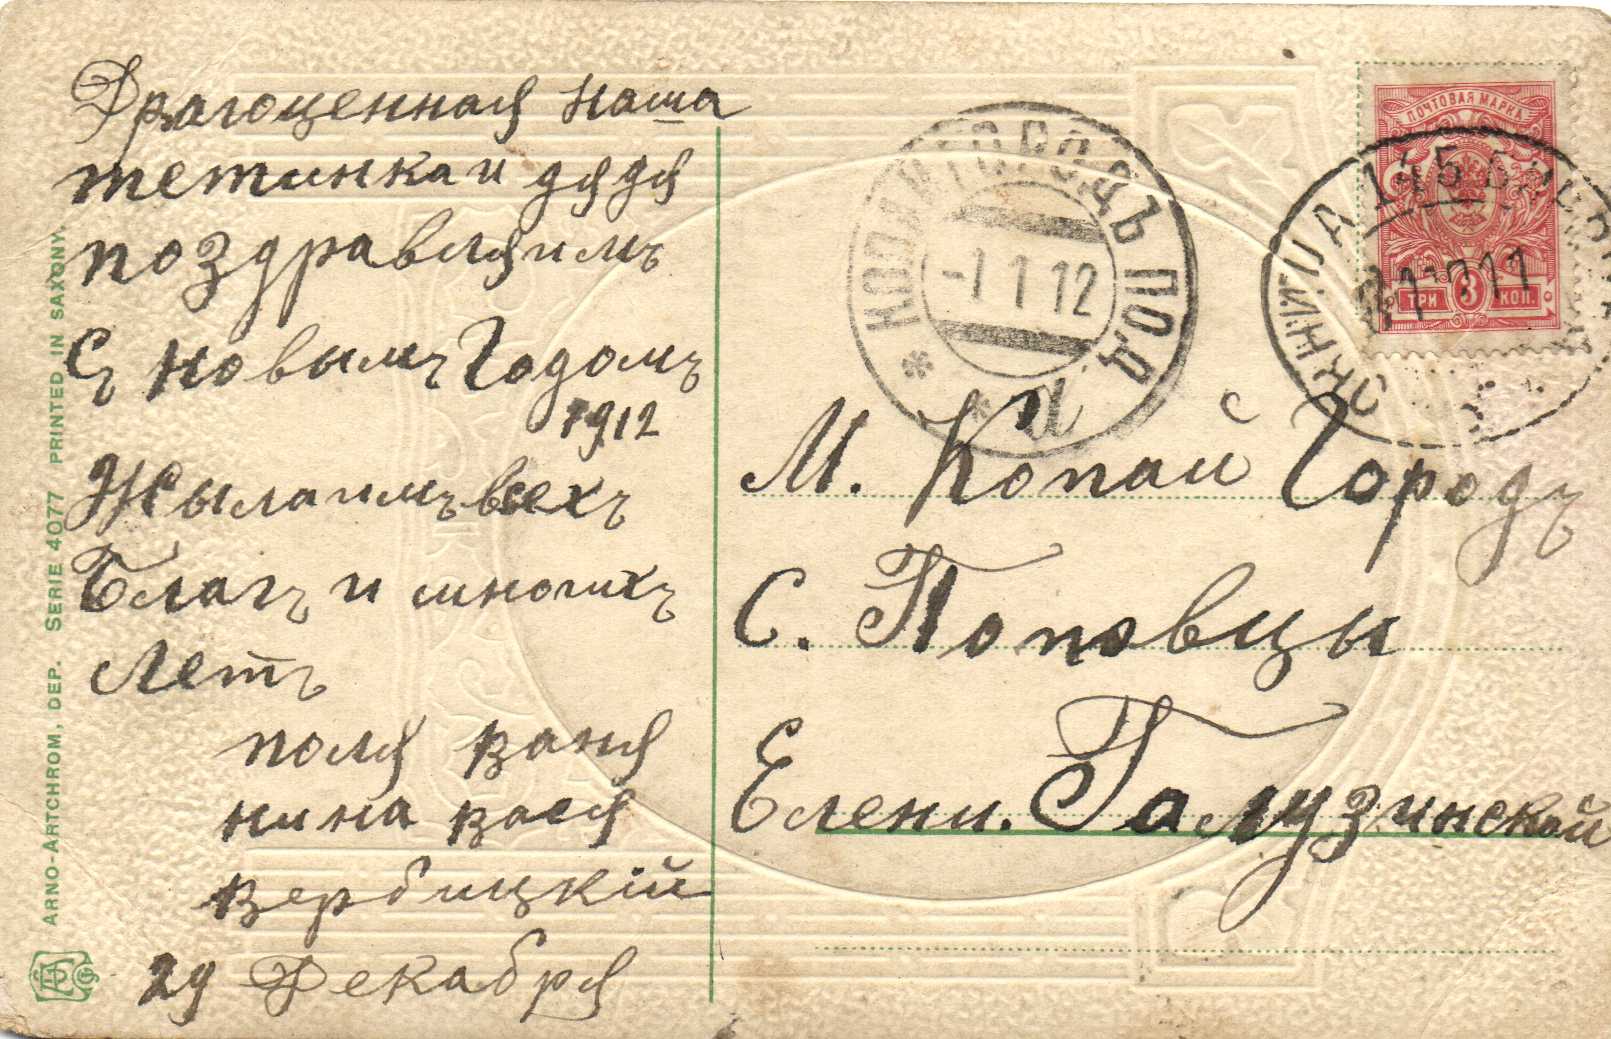 Драгоценная наша
тетинка и дядя
поздравляимъ
Съ новымъ Годомъ
1912
Жылаимъ всехъ
Благъ и многихъ
Летъ
поля ваня
нина вася
вербицкій
29 Декабря
М. Копай Городъ
С. Поповцы
Елени. Галузинской
КОПАЙГОРОДЪ ПОД.
-1 1 12
а
145
11
ПОЧТОВАЯ МАРКА
ТРИ 3 КОП.
ARNO-ARTCHROM, DEP. SERIE 4077 PRINTED IN SAXONY.